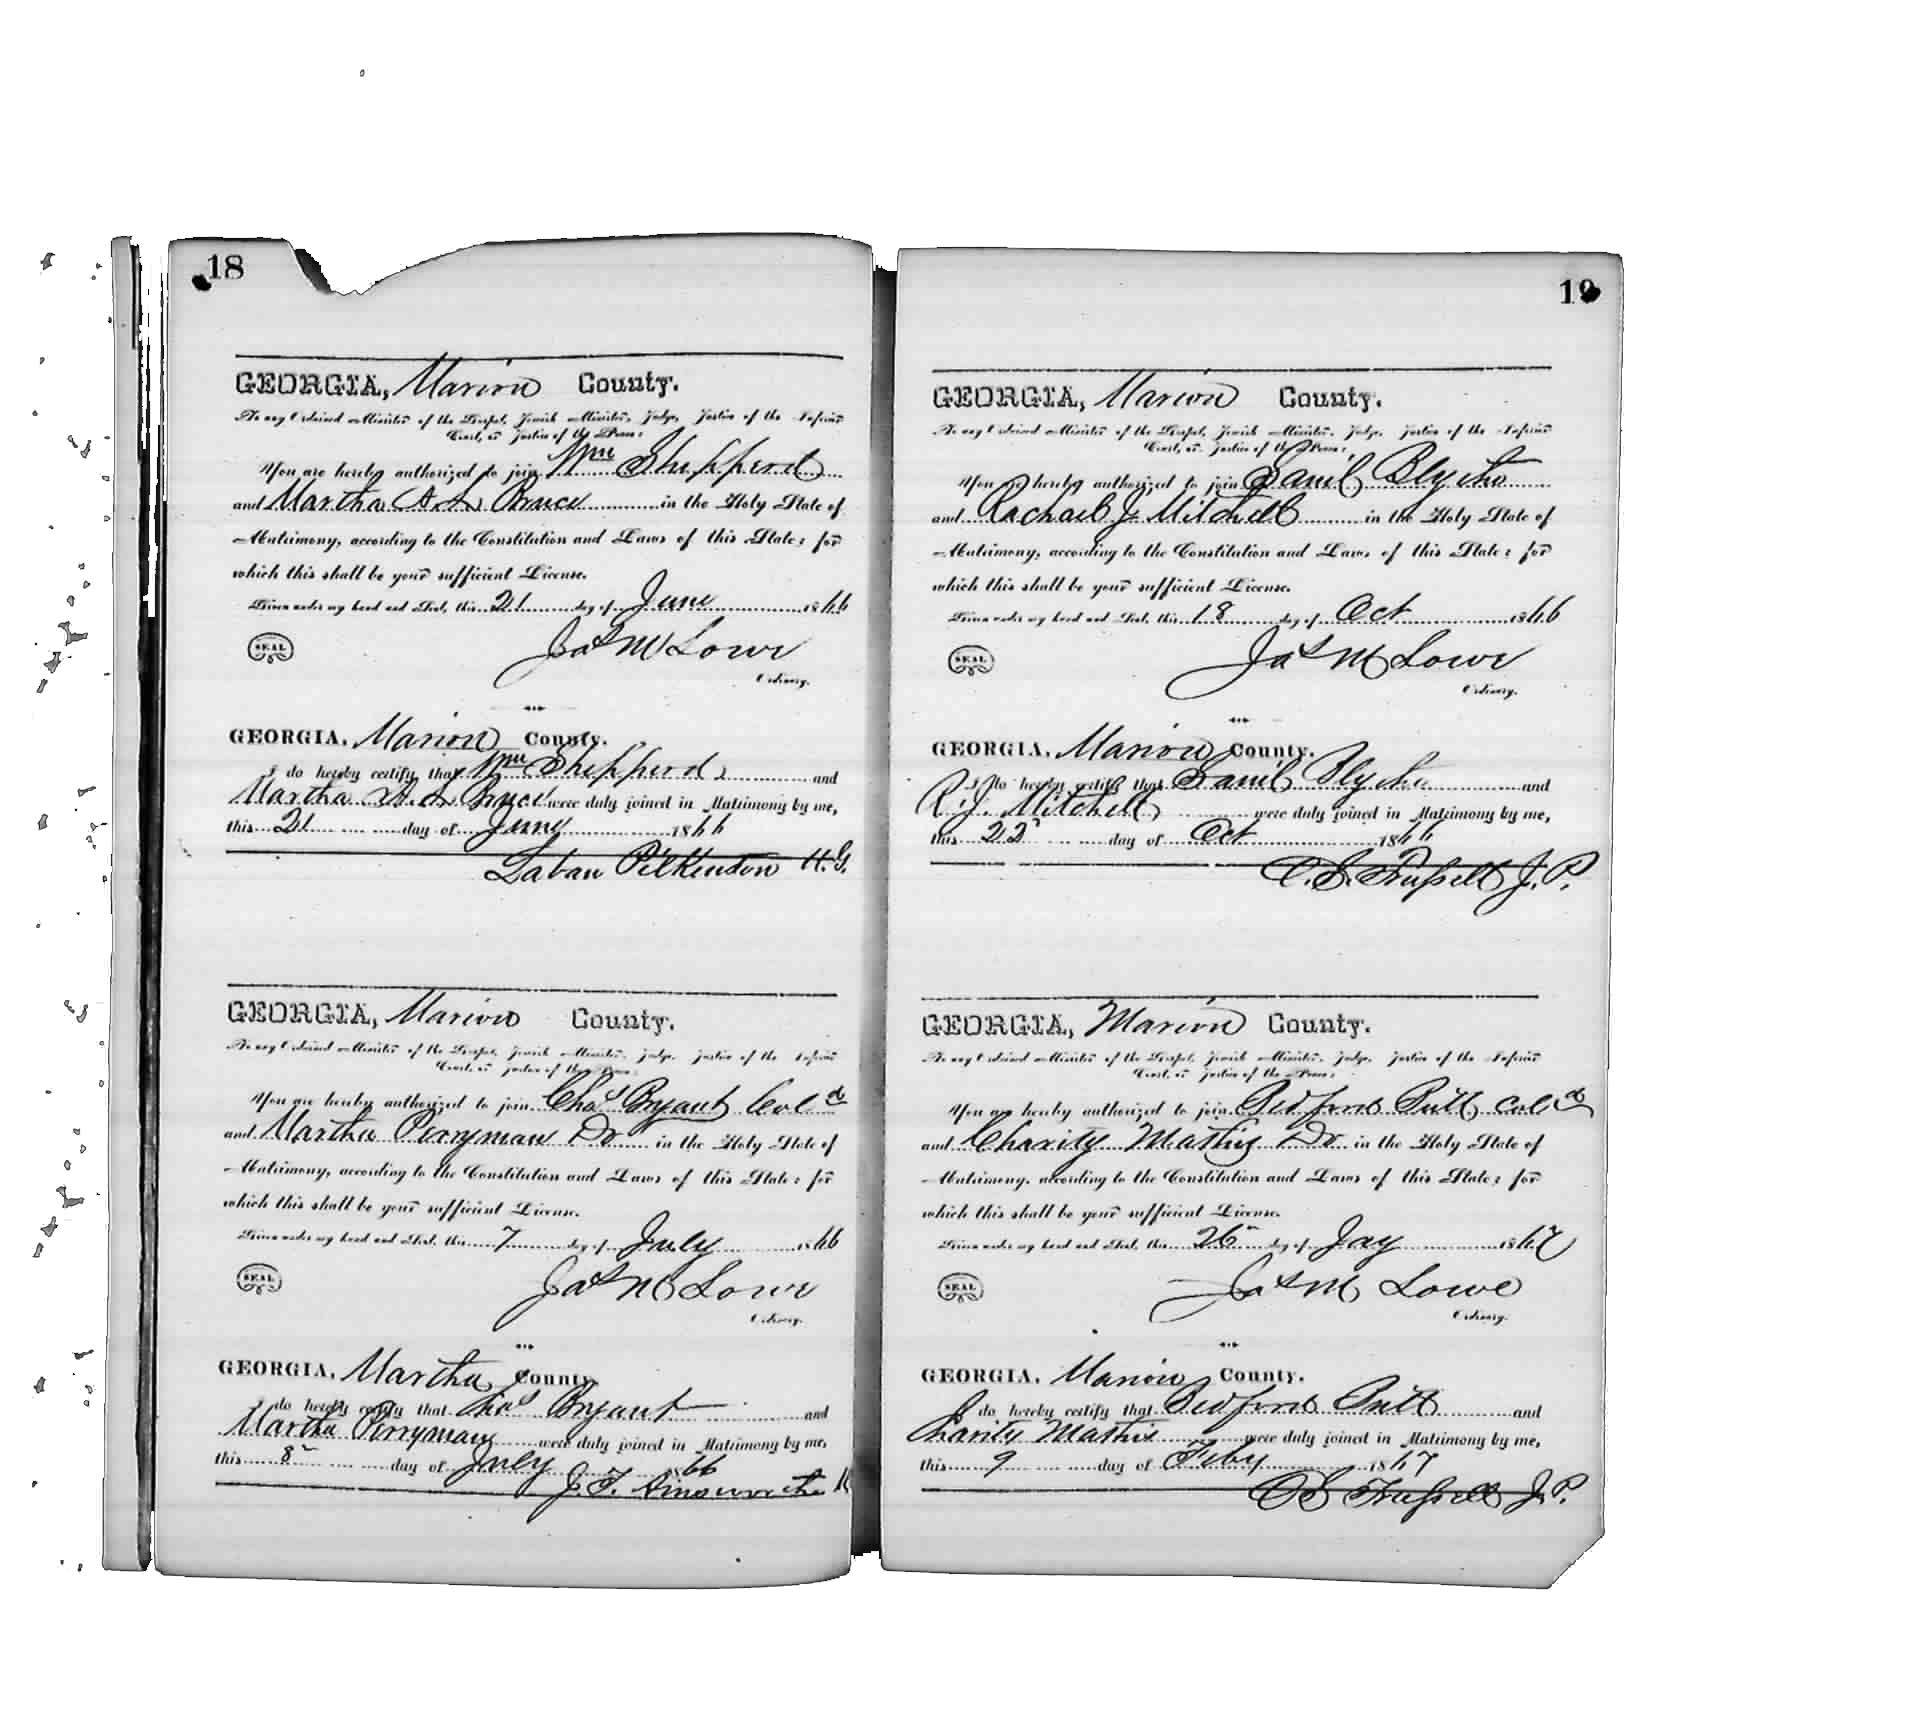 18
GEORGIA, Marion County.
To any Ordained Minister of the Gospel, Jewish Minister, Judge, Justice of the Inferior
Court, or Justice of the Peace:
You are hereby authorized to join Wm Shepperd
and Martha A. L. Bruce in the Holy State of
Matrimony, according to the Constitution and Laws of this State; for
which this shall be your sufficient License.
Given under my hand and Seal, this 21 day of June 1866
SEAL
Jas M Lowe
Ordinary.
GEORGIA, Marion County.
I do hereby certify that Wm Shepperd and
Martha A. L. Bruce were duly joined in Matrimony by me,
this 21 day of June 1866
Laban Pilkinton M.G.
GEORGIA, Marion County.
To any Ordained Minister of the Gospel, Jewish Minister, Judge, Justice of the Inferior
Court, or Justice of the Peace:
You are hereby authorized to join Chas Bryant Cold
and Martha Perryman Do in the Holy State of
Matrimony, according to the Constitution and Laws of this State; for
which this shall be your sufficient License.
Given under my hand and Seal, this 7 day of July 1866
SEAL
Jas M Lowe
Ordinary.
GEORGIA, Martha County
I do hereby certify that Chas Bryant and
Martha Perryman were duly joined in Matrimony by me,
this 8 day of July 1866
J. F. Ainsworth
19
GEORGIA, Marion County.
To any Ordained Minister of the Gospel, Jewish Minister, Judge, Justice of the Inferior
Court, or Justice of the Peace:
You are hereby authorized to join Danil Blythe
and Rachael J. Mitchell in the Holy State of
Matrimony, according to the Constitution and Laws of this State; for
which this shall be your sufficient License.
Given under my hand and Seal, this 18 day of Oct 1866
SEAL
Jas M Lowe
Ordinary.
GEORGIA, Marion County.
I do hereby certify that Danil Blythe and
R. J. Mitchell were duly joined in Matrimony by me,
this 22 day of Oct 1866
C. S. Trussell J. P.
GEORGIA, Marion County.
To any Ordained Minister of the Gospel, Jewish Minister, Judge, Justice of the Inferior
Court, or Justice of the Peace:
You are hereby authorized to join Bedford Pitt Cold
and Charity Mathis Do in the Holy State of
Matrimony, according to the Constitution and Laws of this State; for
which this shall be your sufficient License.
Given under my hand and Seal, this 26 day of Jay 1867
SEAL
Jas M Lowe
Ordinary.
GEORGIA, Marion County.
I do hereby certify that Bedford Pitt and
Charity Mathis were duly joined in Matrimony by me,
this 9 day of Feby 1867
C S Trussell J. P.